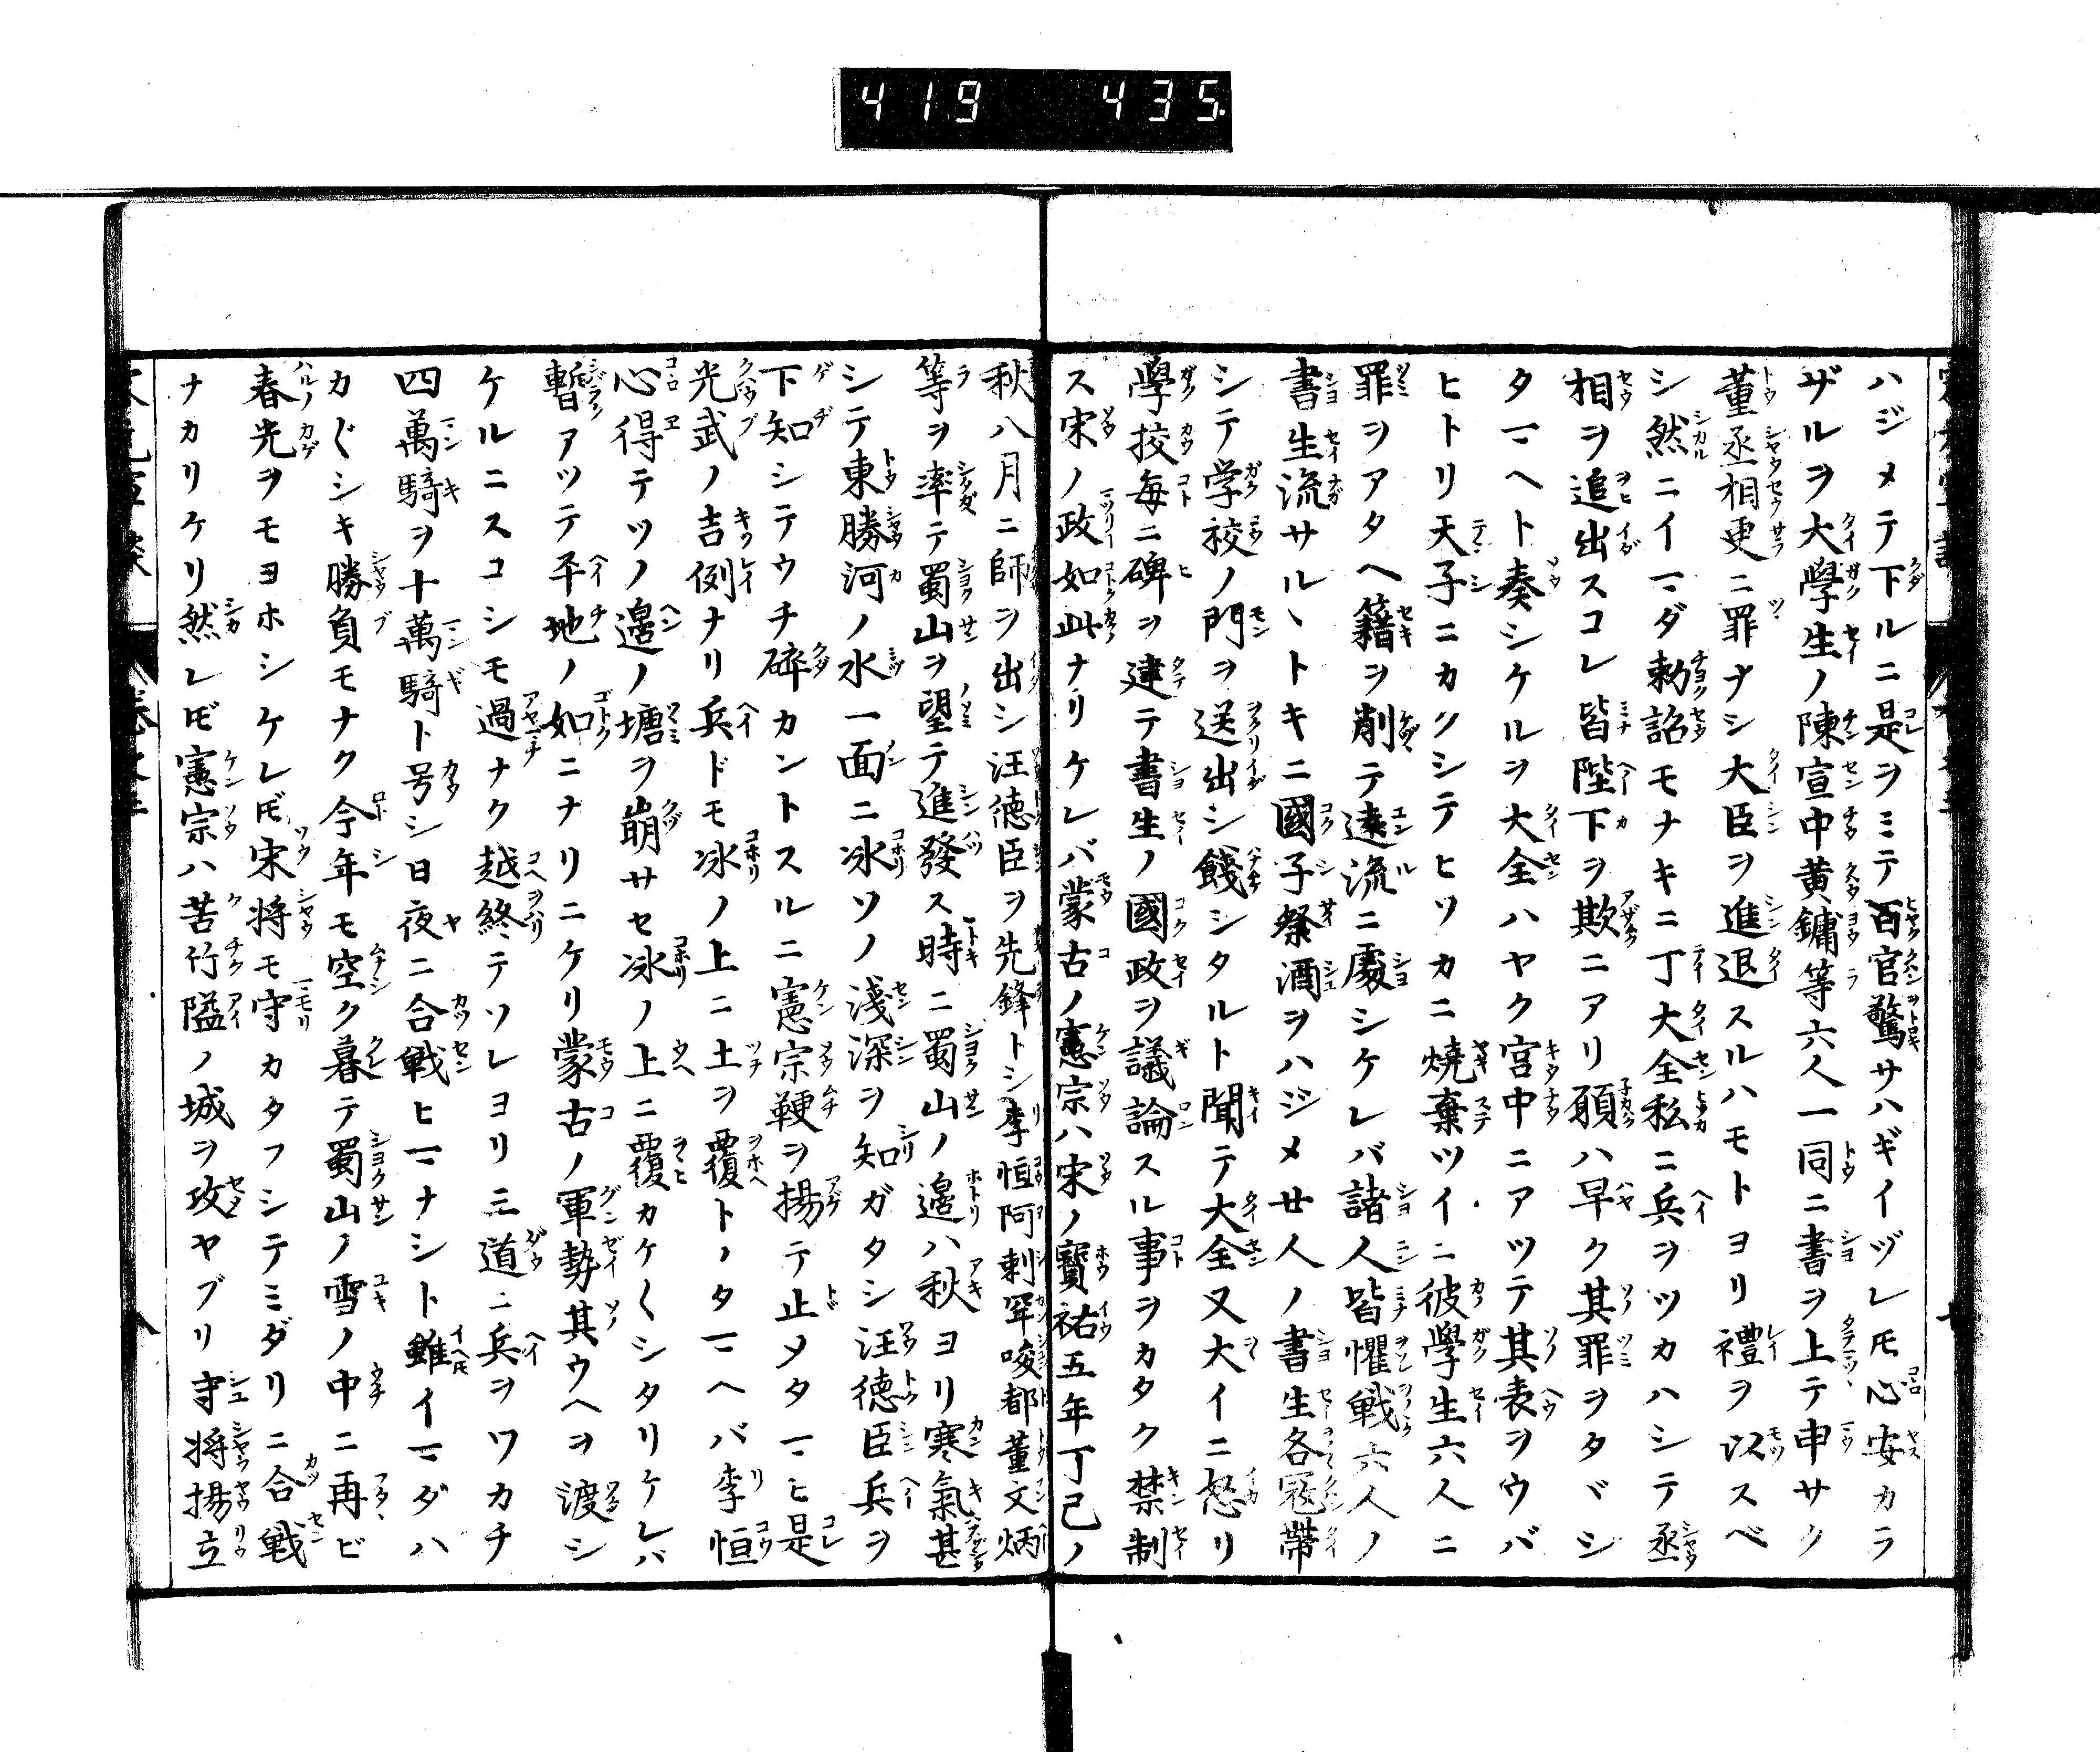 419 435
ハジメテ下ルニ是ヲミテ百官驚サハギイヅレモ心安カラ
ザルヲ大學生ノ陳宣中黄鏞等六人一同ニ書ヲ上テ申サク
董丞相更ニ罪ナシ大臣ヲ進退スルハモトヨリ禮ヲ以スベ
シ然ニイマダ勅詔モナキニ丁大全私ニ兵ヲツカハシテ丞
相ヲ追出スコレ皆陛下ヲ欺ニアリ願ハ早ク其罪ヲタヾシ
タマヘト奏シケルヲ大全ハヤク宮中ニアツテ其表ヲウバ
ヒトリ天子ニカクシテヒソカニ燒棄ツイニ彼學生六人ニ
罪ヲアタヘ籍ヲ削テ遠流ニ處シケレバ諸人皆懼戦六人ノ
書生流サルヽトキニ國子祭酒ヲハジメ廿人ノ書生各冠帶
シテ学校ノ門ヲ送出シ餞シタルト聞テ大全又大イニ怒リ
學挍毎ニ碑ヲ建テ書生ノ國政ヲ議論スル事ヲカタク禁制
ス宋ノ政如此ナリケレバ蒙古ノ憲宗ハ宋ノ寶祐五年丁己ノ
秋八月ニ師ヲ出シ汪徳臣ヲ先鋒トシ李恒阿剌罕唆都董文炳
等ヲ率テ蜀山ヲ望テ進發ス時ニ蜀山ノ邉ハ秋ヨリ寒氣甚
シテ東勝河ノ水一面ニ冰ソノ淺深ヲ知ガタシ汪徳臣兵ヲ
下知シテウチ碎カントスルニ憲宗鞭ヲ揚テ止メタマヒ是
光武ノ吉例ナリ兵ドモ冰ノ上ニ土ヲ覆トノタマヘバ李恒
心得テツノ邉ノ塘ヲ崩サセ冰ノ上ニ覆カケ〱シタリケレバ
暫アツテ平地ノ如ニナリニケリ蒙古ノ軍勢其ウヘヲ渡シ
ケルニスコシモ過ナク越終テソレヨリ三道ニ兵ヲワカチ
四萬騎ヲ十萬騎ト号シ日夜ニ合戦ヒマナシト雖イマダハ
カ〲シキ勝負モナク今年モ空ク暮テ蜀山ノ雪ノ中ニ再ビ
春光ヲモヨホシケレ𪜈宋将モ守カタフシテミダリニ合戦
ナカリケリ然レ𪜈憲宗ハ苦竹隘ノ城ヲ攻ヤブリ守将揚立